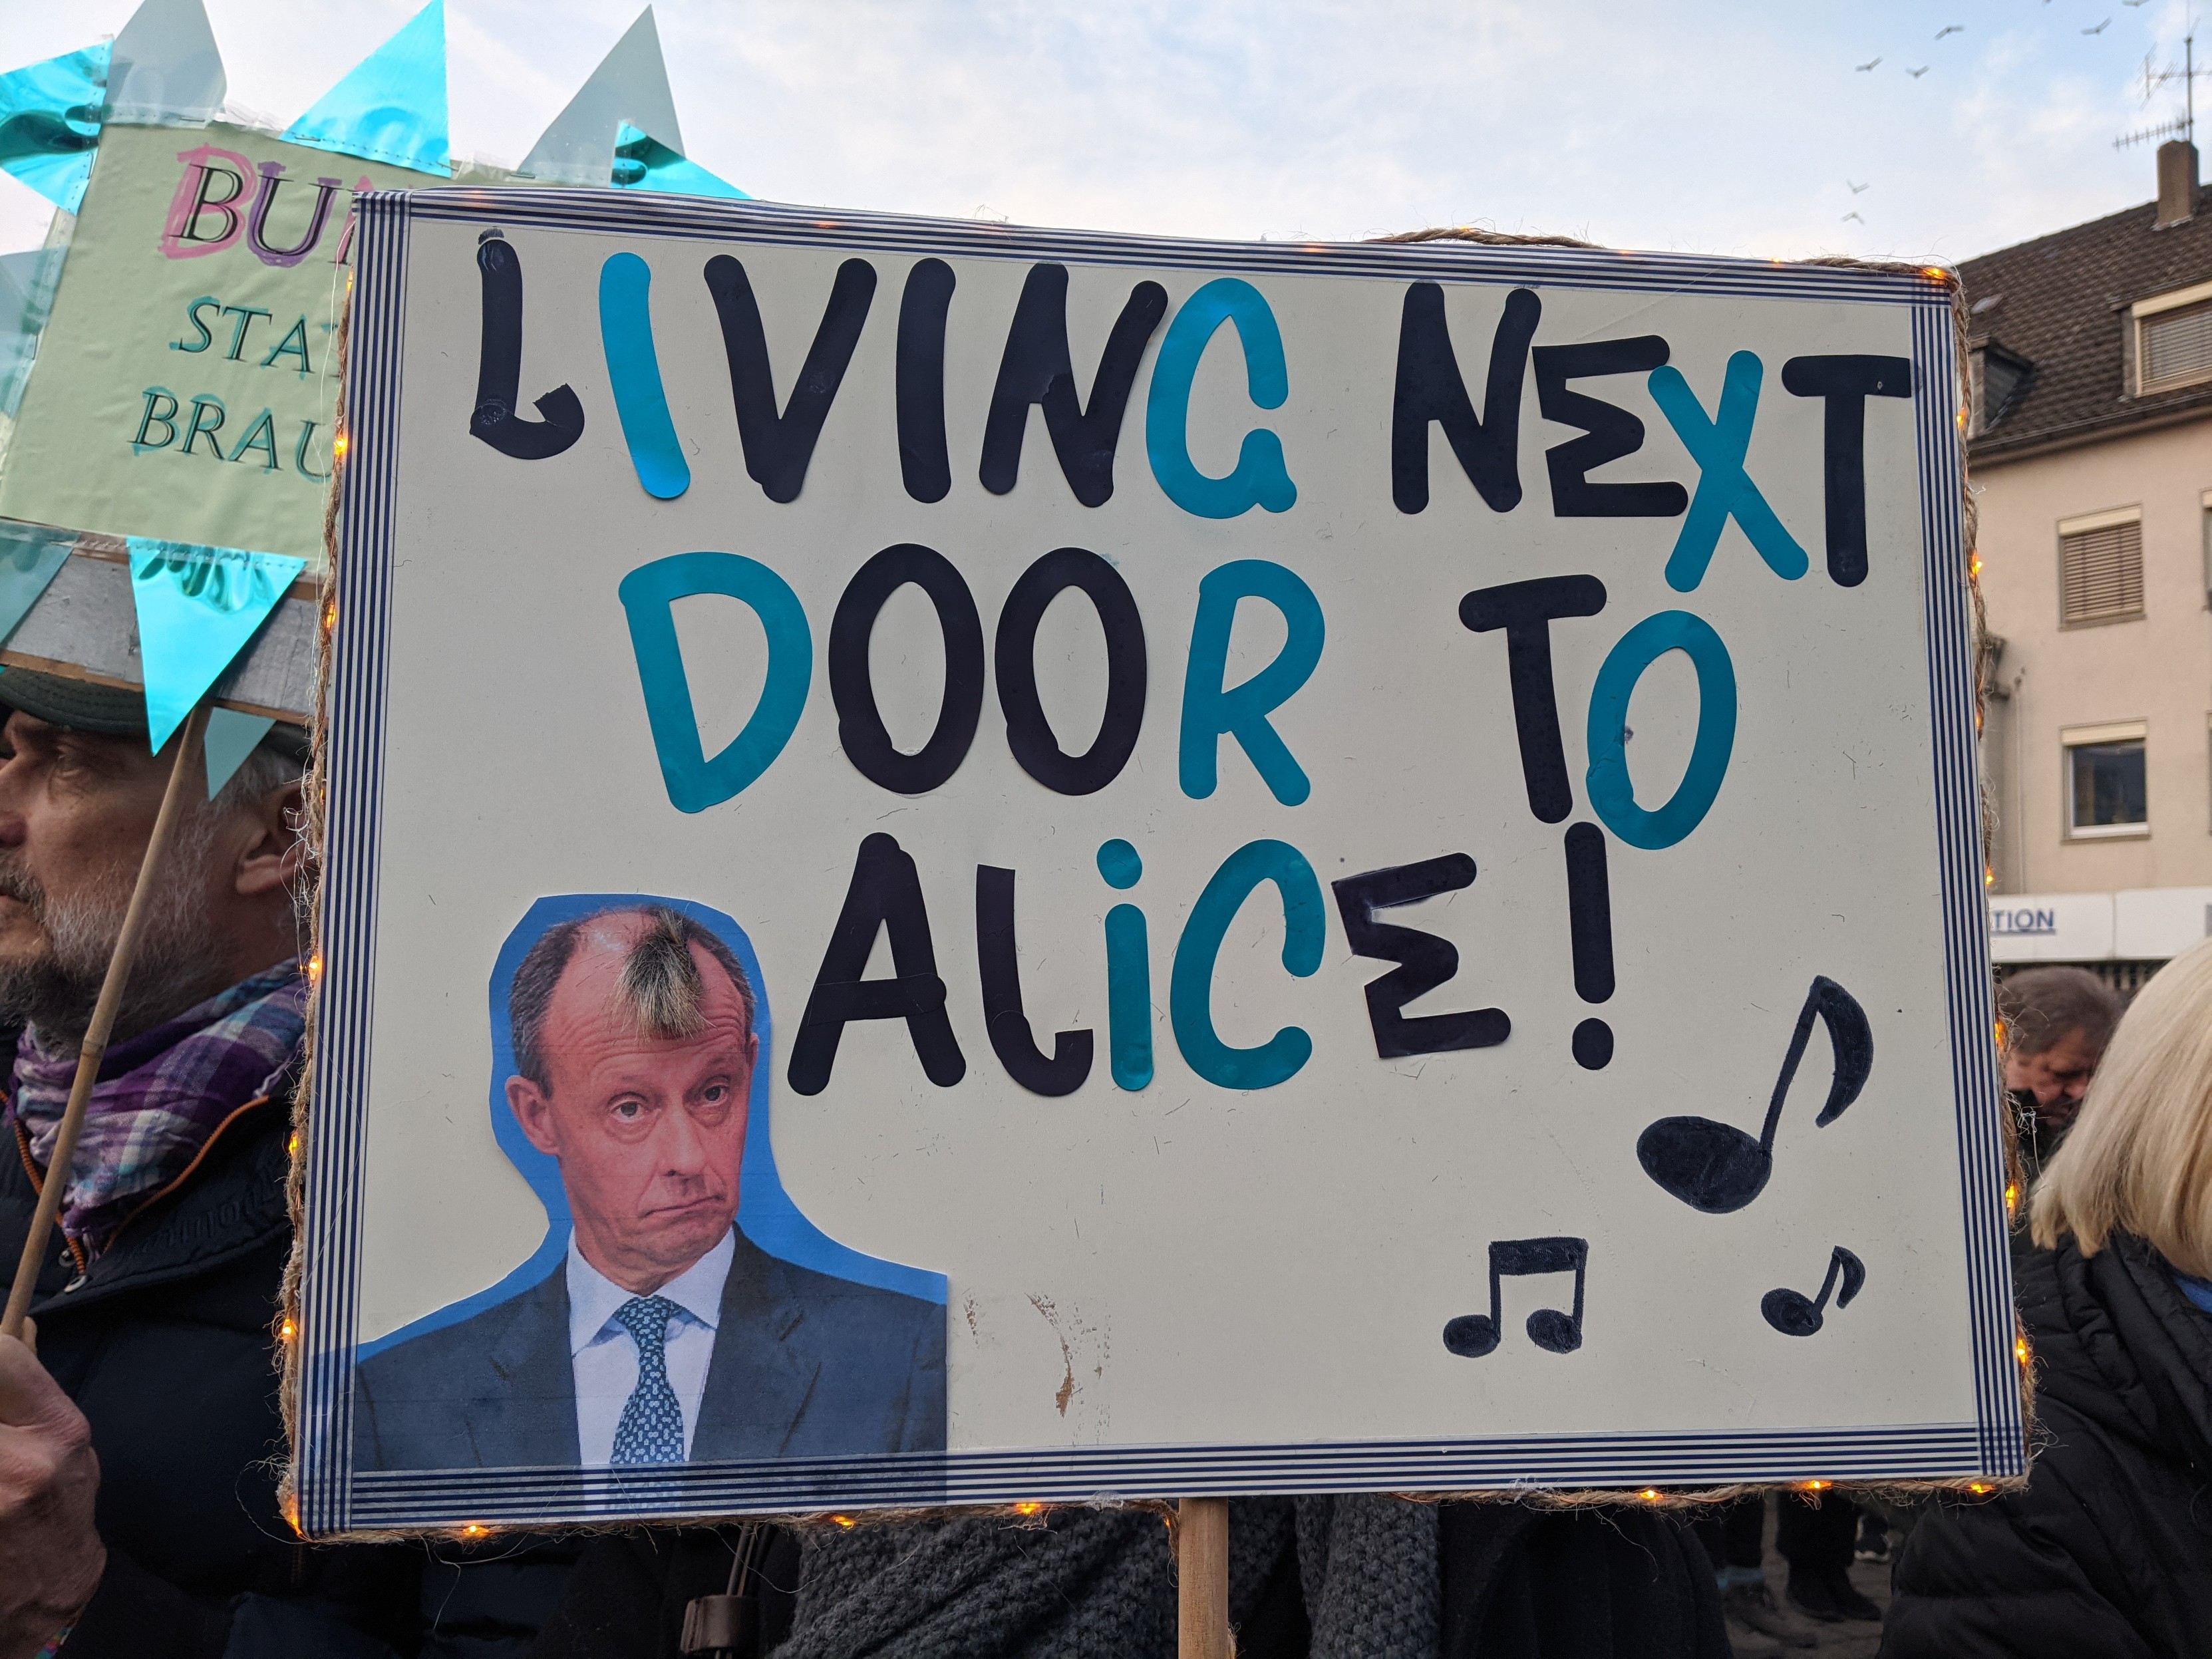 BU
STA
BRAU
LIVING NEXT
DOOR TO
ALiCE!
TION